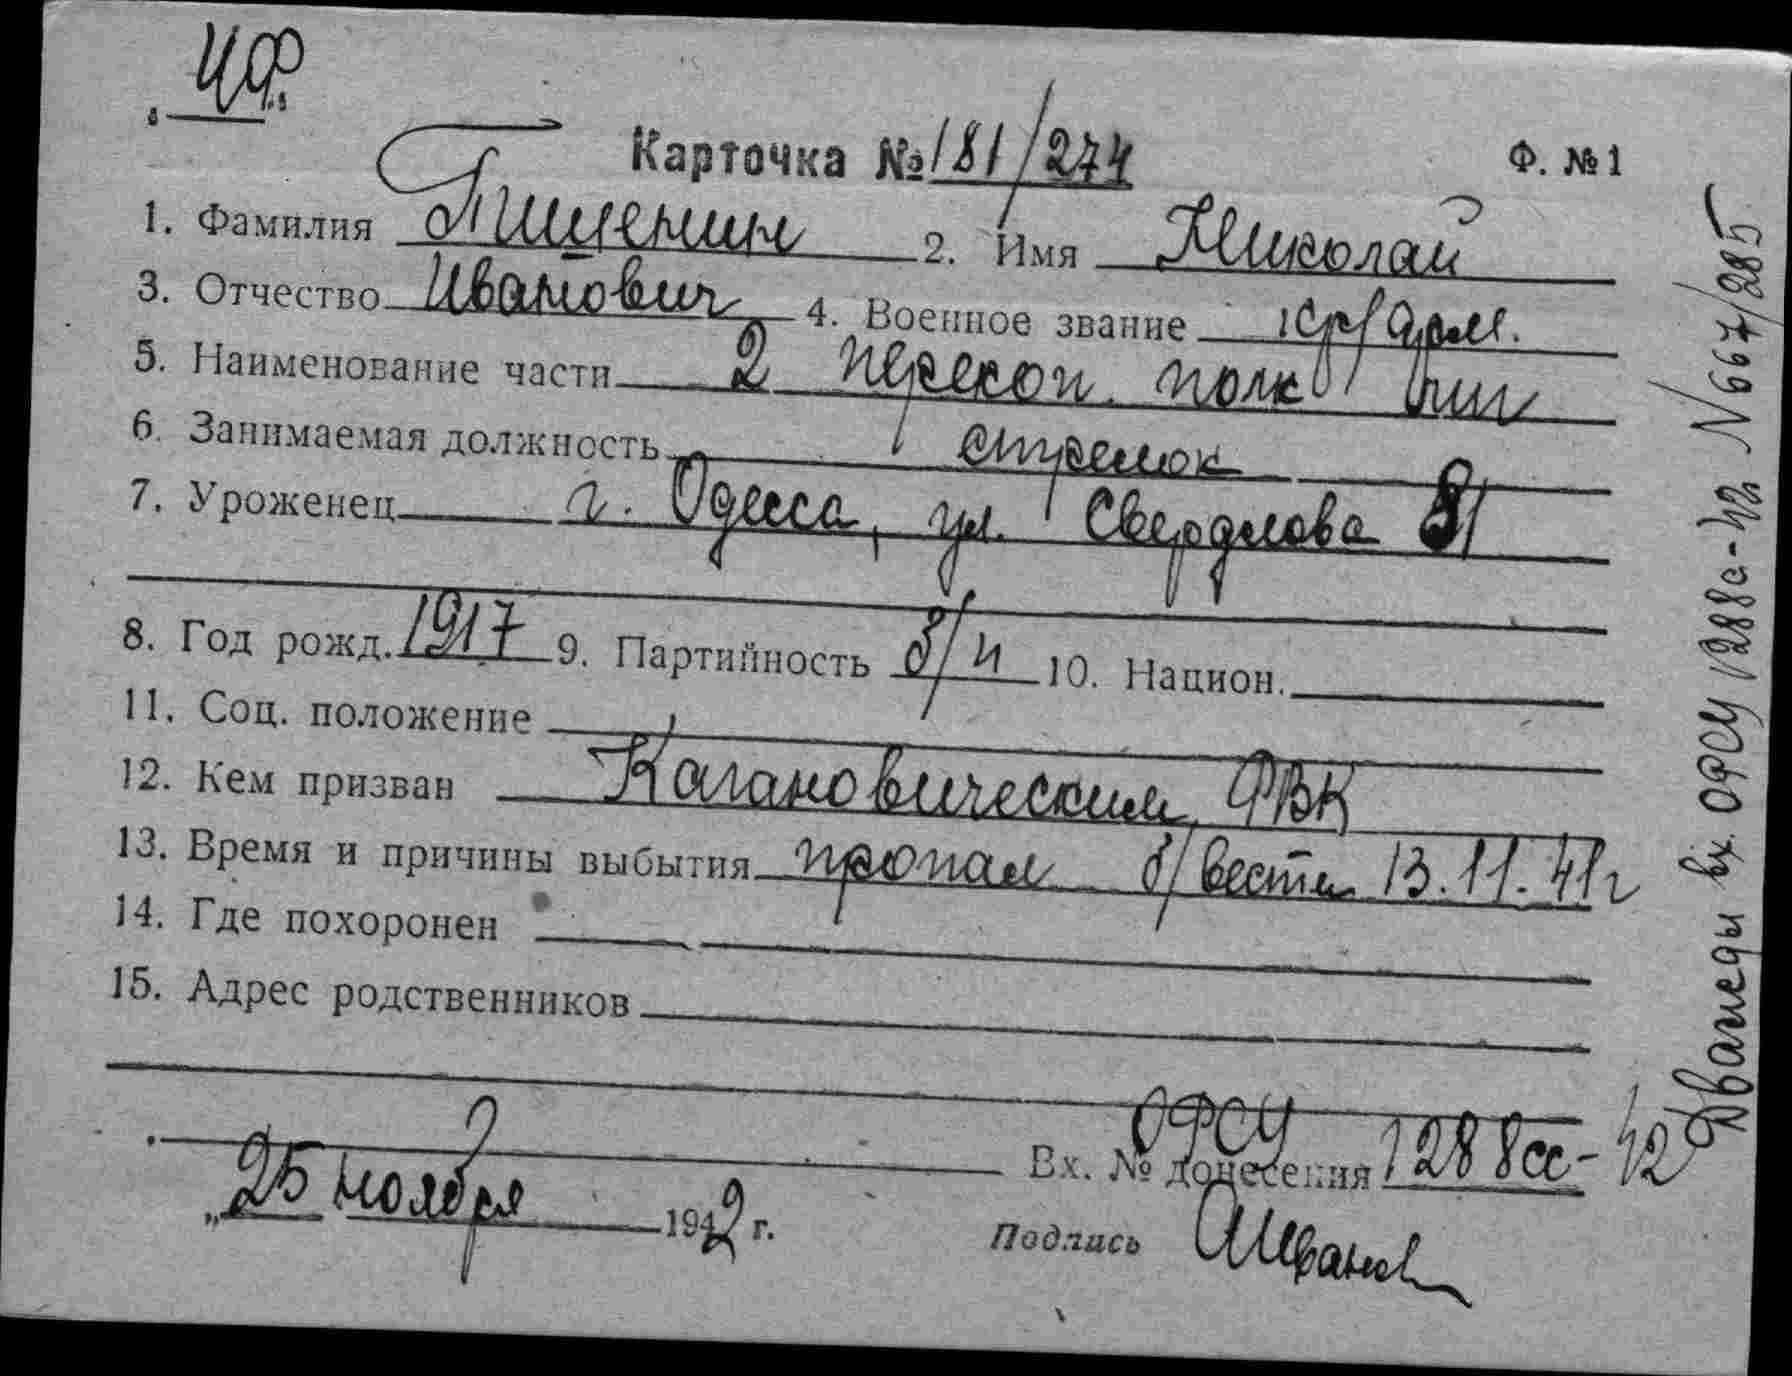 ЧФ.
Карточка № 181/274 Ф. № 1
1. Фамилия Пищенин 2. Имя Николай
3. Отчество Иванович 4. Военное звание кр/арм.
5. Наименование части 2 перекоп. полк
6. Занимаемая должность стрелок
7. Уроженец г. Одесса, ул. Свердлова 81
8. Год рожд. 1917 9. Партийность б/п 10. Национ.
11. Соц. положение
12. Кем призван Кагановическим РВК
13. Время и причины выбытия пропал б/вести 13.11.41г
14. Где похоронен
15. Адрес родственников
ОРСУ
Вх. № донесения 1288сс-42
„25 ноября 1942 г.
Подпись
Дважды вх. ОРСУ 1288с-42 N667/285